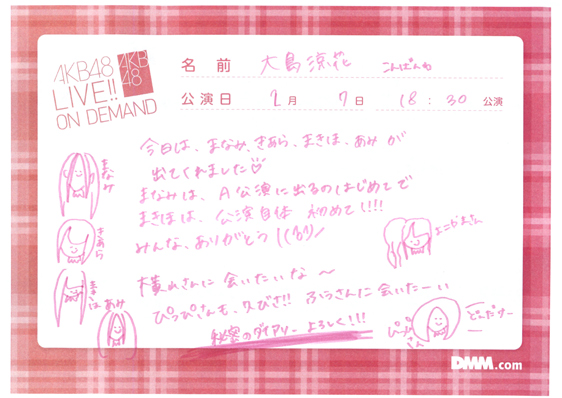 AKB48
LIVE!!
ON DEMAND
AKB
48
名前 大島涼花 こんばんわ
公演日 2月 7日 18:30 公演
今日は、まなみ、きあら、まきほ、あみが
出てくれました♡
まなみは、A公演に出るのはじめてで
まきほは、公演自体 初めて!!!!
みんな、ありがとう
まなみ
きあら
まきほ
あみ
よこやまさん
横山さんに会いたいな〜
ぴっぴさんも、久びさ!! ふうさんに会いたーい
秘密のダイアリー よろしく!!!
ぴっぴさん
どんだけー
DMM.com